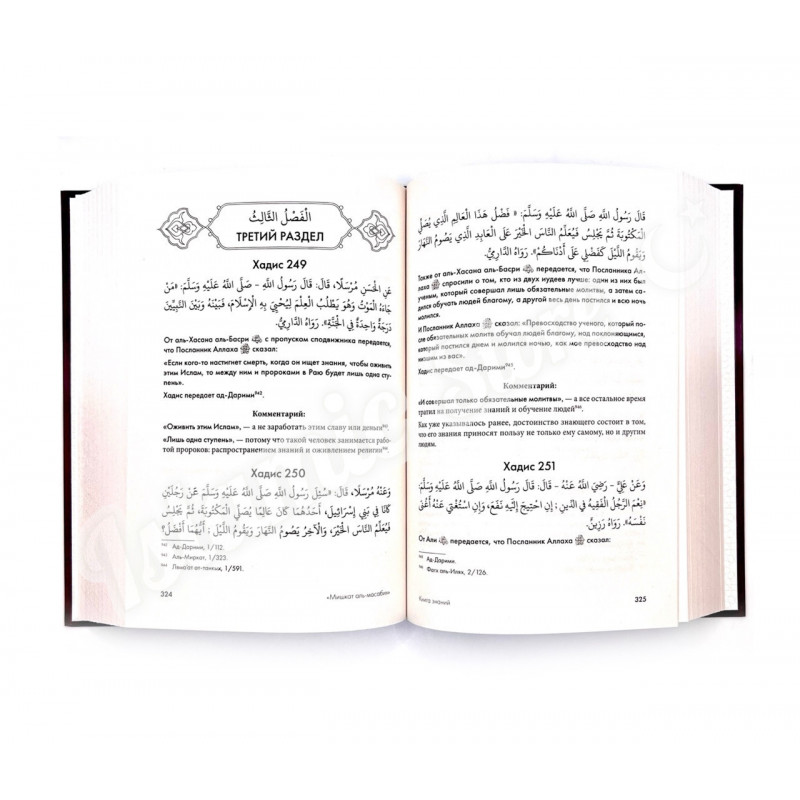 الْفَصْلُ الثَّالِثُ
ТРЕТИЙ РАЗДЕЛ
Хадис 249
عَنِ الْحَسَنِ مُرْسَلًا، قَالَ: قَالَ رَسُولُ اللَّهِ – صَلَّى اللَّهُ عَلَيْهِ وَسَلَّمَ: «مَنْ
جَاءَهُ الْمَوْتُ وَهُوَ يَطْلُبُ الْعِلْمَ لِيُحْيِيَ بِهِ الْإِسْلَامَ، فَبَيْنَهُ وَبَيْنَ النَّبِيِّينَ
دَرَجَةٌ وَاحِدَةٌ فِي الْجَنَّةِ». رَوَاهُ الدَّارِمِيُّ.
От аль-Хасана аль-Басри ﷺ с пропуском сподвижника передается,
что Посланник Аллаха ﷺ сказал:
«Если кого-то настигнет смерть, когда он ищет знания, чтобы оживить
этим Ислам, то между ним и пророками в Раю будет лишь одна сту-
пень».
Хадис передает ад-Дарими⁹⁴³.
Комментарий:
«Оживить этим Ислам», — а не заработать этим славу или деньги⁹⁴⁴.
«Лишь одна ступень», — потому что такой человек занимается рабо-
той пророков: распространением знаний и оживлением религии⁹⁴⁵.
Хадис 250
وَعَنْهُ مُرْسَلًا، قَالَ: «سُئِلَ رَسُولُ اللَّهِ صَلَّى اللَّهُ عَلَيْهِ وَسَلَّمَ عَنْ رَجُلَيْنِ
كَانَا فِي بَنِي إِسْرَائِيلَ، أَحَدُهُمَا كَانَ عَالِمًا يُصَلِّي الْمَكْتُوبَةَ، ثُمَّ يَجْلِسُ
فَيُعَلِّمُ النَّاسَ الْخَيْرَ، وَالْآخَرُ يَصُومُ النَّهَارَ وَيَقُومُ اللَّيْلَ؛ أَيُّهُمَا أَفْضَلُ؟
⁹⁴³ Ад-Дарими, 1/112.
⁹⁴⁴ Аль-Миркат, 1/323.
⁹⁴⁵ Ляма'ат ат-танкых, 1/591.
324
«Мишкат аль-масабих»
قَالَ رَسُولُ اللَّهِ صَلَّى اللَّهُ عَلَيْهِ وَسَلَّمَ: « فَضْلُ هَذَا الْعَالِمِ الَّذِي يُصَلِّي
الْمَكْتُوبَةَ ثُمَّ يَجْلِسُ فَيُعَلِّمُ النَّاسَ الْخَيْرَ عَلَى الْعَابِدِ الَّذِي يَصُومُ النَّهَارَ
وَيَقُومُ اللَّيْلَ كَفَضْلِي عَلَى أَدْنَاكُمْ». رَوَاهُ الدَّارِمِيُّ.
Также от аль-Хасана аль-Басри ﷺ передается, что Посланника Ал-
лаха ﷺ спросили о том, кто из двух иудеев лучше: один из них был
ученым, который совершал лишь обязательные молитвы, а затем са-
дился обучать людей благому, а другой весь день постился и всю ночь
молился.
И Посланник Аллаха ﷺ сказал: «Превосходство ученого, который по-
сле обязательных молитв обучал людей благому, над поклоняющимся,
который постился днем и молился ночью, как мое превосходство над
низшим из вас».
Хадис передает ад-Дарими⁹⁴⁵.
Комментарий:
«И совершал только обязательные молитвы», — а все остальное время
тратил на получение знаний и обучение людей⁹⁴⁶.
Как уже указывалось ранее, достоинство знающего состоит в том,
что его знания приносят пользу не только ему самому, но и другим
людям.
Хадис 251
وَعَنْ عَلِيٍّ – رَضِيَ اللَّهُ عَنْهُ – قَالَ: قَالَ رَسُولُ اللَّهِ صَلَّى اللَّهُ عَلَيْهِ وَسَلَّمَ:
«نِعْمَ الرَّجُلُ الْفَقِيهُ فِي الدِّينِ ; إِنِ احْتِيجَ إِلَيْهِ نَفَعَ، وَإِنِ اسْتُغْنِيَ عَنْهُ أَغْنَى
نَفْسَهُ». رَوَاهُ رَزِينٌ.
От Али ﷺ передается, что Посланник Аллаха ﷺ сказал:
Ад-Дарими.
Фатх аль-Илях, 2/126.
Книга знаний
325